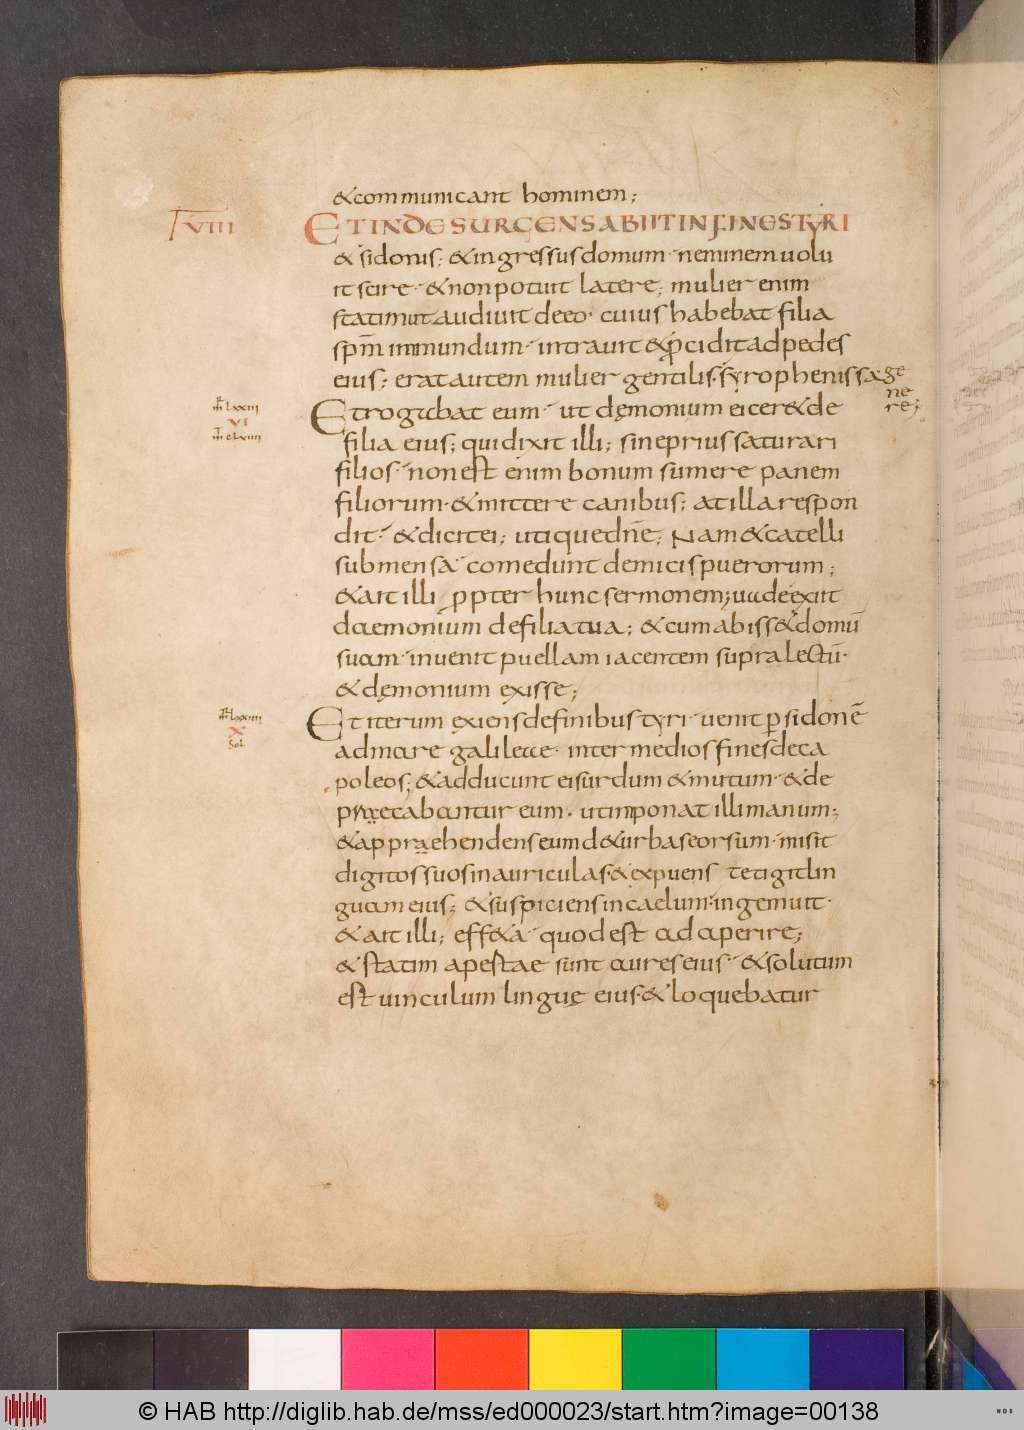 &communicant hominem;
VIIII
ET INDE SURGENS ABIIT IN FINES TYRI
& sidonis; & ingressus domum neminem uolu
it scire · & non potuit latere; mulier enim
statim ut audiuit de eo · cuius habebat filia
spm̄ inmundum · intrauit & prociditad pedes
eius; erat autem mulier gentilis · syrophenissa ge
nere;
m̄ lxxiii
VI
m̄ clviiii
Et rogabat eum · ut dęmonium eicer& de
filia eius; qui dixit illi; sine prius saturari
filios · non est enim bonum sumere panem
filiorum · & mittere canibus; at illa respon
dit · & dicit ei; utique dn̄e; Nam & catelli
sub mensa · comedunt de micis puerorum;
& ait illi propter hunc sermonem; uade exiit
daemonium de filia tua; & cum abiss& domū
suam · inuenit puellam iacentem supra lectū ·
& dęmonium exisse;
lxxiiii
X
Sol
Et iterum exiens de finibus tyri · uenit p sidonē
ad mare galileae · inter medios fines deca
poleos; & adducunt ei surdum & mutum · & de
praecabantur eum · ut inponat illi manum;
& appraehendens eum de turba seorsum · misit
digitos suos in auriculas · & expuens tetigit lin
guam eius; & suspiciens in caelum · ingemuit ·
& ait illi; eff&a · quod est adaperire;
& statim apestae sunt aures eius · & solutum
est uinculum linguę eius · & loquebatur
© HAB http://diglib.hab.de/mss/ed000023/start.htm?image=00138